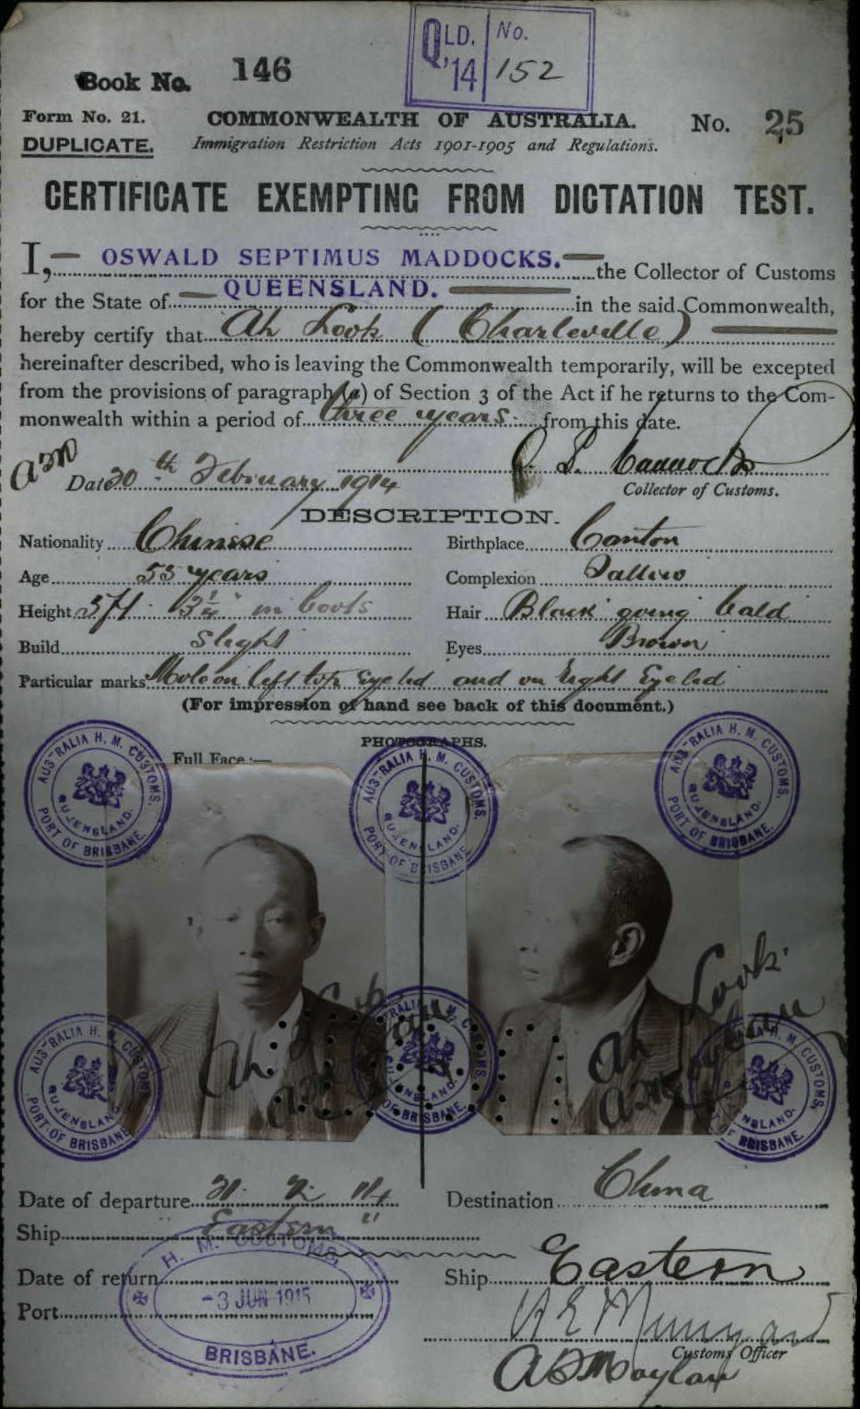 QLD. '14 No. 152
Book No. 146
Form No. 21. COMMONWEALTH OF AUSTRALIA. No. 25
DUPLICATE. Immigration Restriction Acts 1901-1905 and Regulations.
CERTIFICATE EXEMPTING FROM DICTATION TEST.
I, OSWALD SEPTIMUS MADDOCKS. the Collector of Customs
for the State of QUEENSLAND. in the said Commonwealth,
hereby certify that Ah Look (Charleville)
hereinafter described, who is leaving the Commonwealth temporarily, will be excepted
from the provisions of paragraph (a) of Section 3 of the Act if he returns to the Com-
monwealth within a period of three years from this date.
Date 20th February 1914
Collector of Customs.
DESCRIPTION.
Nationality Chinese Birthplace Canton
Age 53 years Complexion Sallow
Height 5ft 3¼" in boots Hair Black going bald
Build Slight Eyes Brown
Particular marks Mole on left top Eyelid and on right Eyelid
(For impression of hand see back of this document.)
PHOTOGRAPHS.
Full Face:—
AUSTRALIA H. M. CUSTOMS. QUEENSLAND. PORT OF BRISBANE.
AUSTRALIA H. M. CUSTOMS. QUEENSLAND. PORT OF BRISBANE.
AUSTRALIA H. M. CUSTOMS. QUEENSLAND. PORT OF BRISBANE.
Ah Look
Ah Look
AUSTRALIA H. M. CUSTOMS. QUEENSLAND. PORT OF BRISBANE.
AUSTRALIA H. M. CUSTOMS. QUEENSLAND. PORT OF BRISBANE.
AUSTRALIA H. M. CUSTOMS. QUEENSLAND. PORT OF BRISBANE.
Date of departure 21. 2. 14 Destination China
Ship Eastern
Date of return Ship Eastern
Port
H. M. CUSTOMS.
-3 JUN 1915
BRISBANE.
Customs Officer